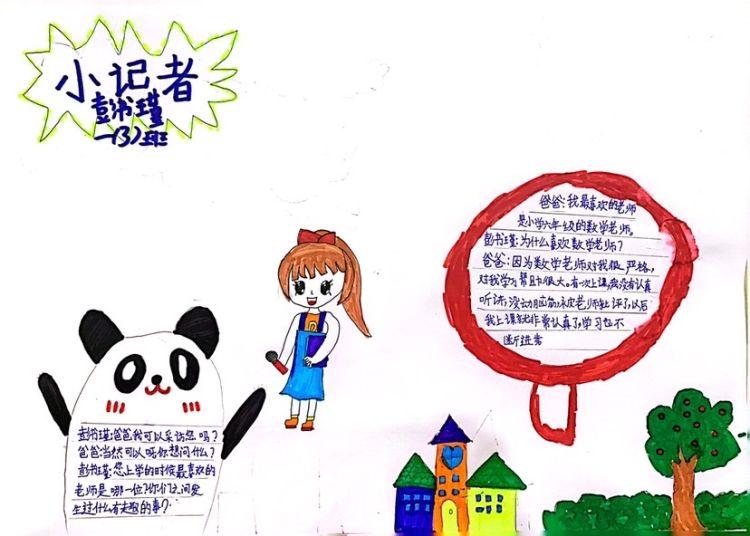 小记者
彭书瑾
一(3)班
彭书瑾:爸爸我可以采访您吗?
爸爸:当然可以呀你想问什么?
彭书瑾:您上学的时候最喜欢的
老师是哪一位?你们之间发
生过什么有趣的事?
爸爸:我最喜欢的老师
是小学六年级的数学老师。
彭书瑾:为什么喜欢数学老师?
爸爸:因为数学老师对我很严格,
对我学习帮助很大。有一次上课,我没有认真
听讲,没 老师批评了,以后
我上课就非常认真了,学习也不
断进步